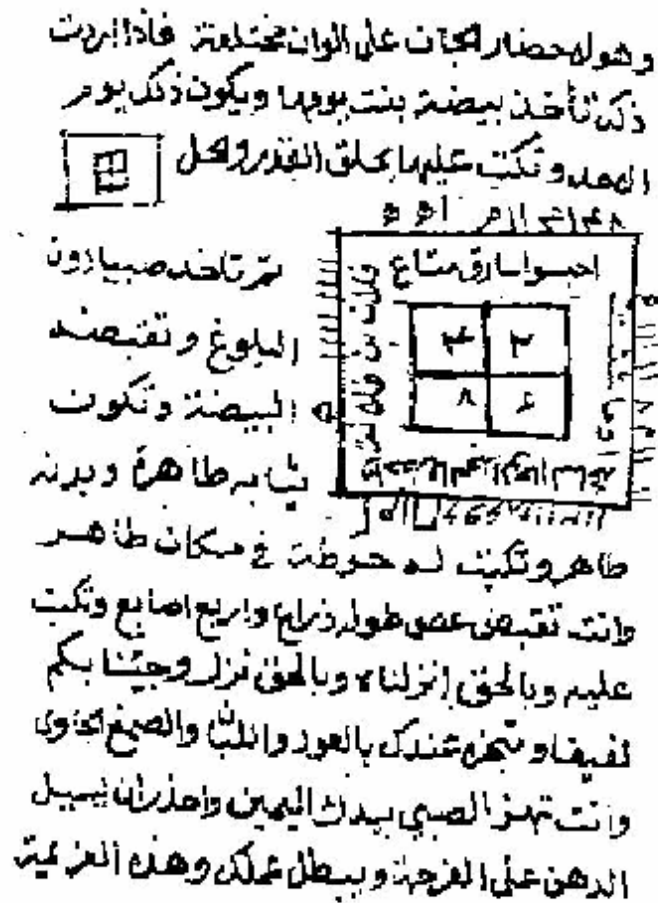 وهو لاحضار الجان على الوان مختلفة فاذا اردت
ذلك تأخذ بيضة بنت يومها ويكون ذلك يوم
وتكتب عليها بحلق القدر والحل
احبسوا سارق متاع
ثم تاخذ صبيا دون
البلوغ وتقبضه
البيضة وتكون
٢ ٤
٦ ٨
ثيابه طاهرة وبدنه
طاهر وتكتب له حوطة في مكان طاهر
وانت تقبض عصى طوله ذراع واربع اصابع وتكتب
عليه وبالحق انزلناه وبالحق نزل وجئنا بكم
لفيفا وتبخره عندك بالعود واللبان والصمغ الجاوى
وانت تهز الصبي بيدك اليمين واحذر ان يسيل
الدهن على الفرجة ويبطل عملك وهذه العزيمة